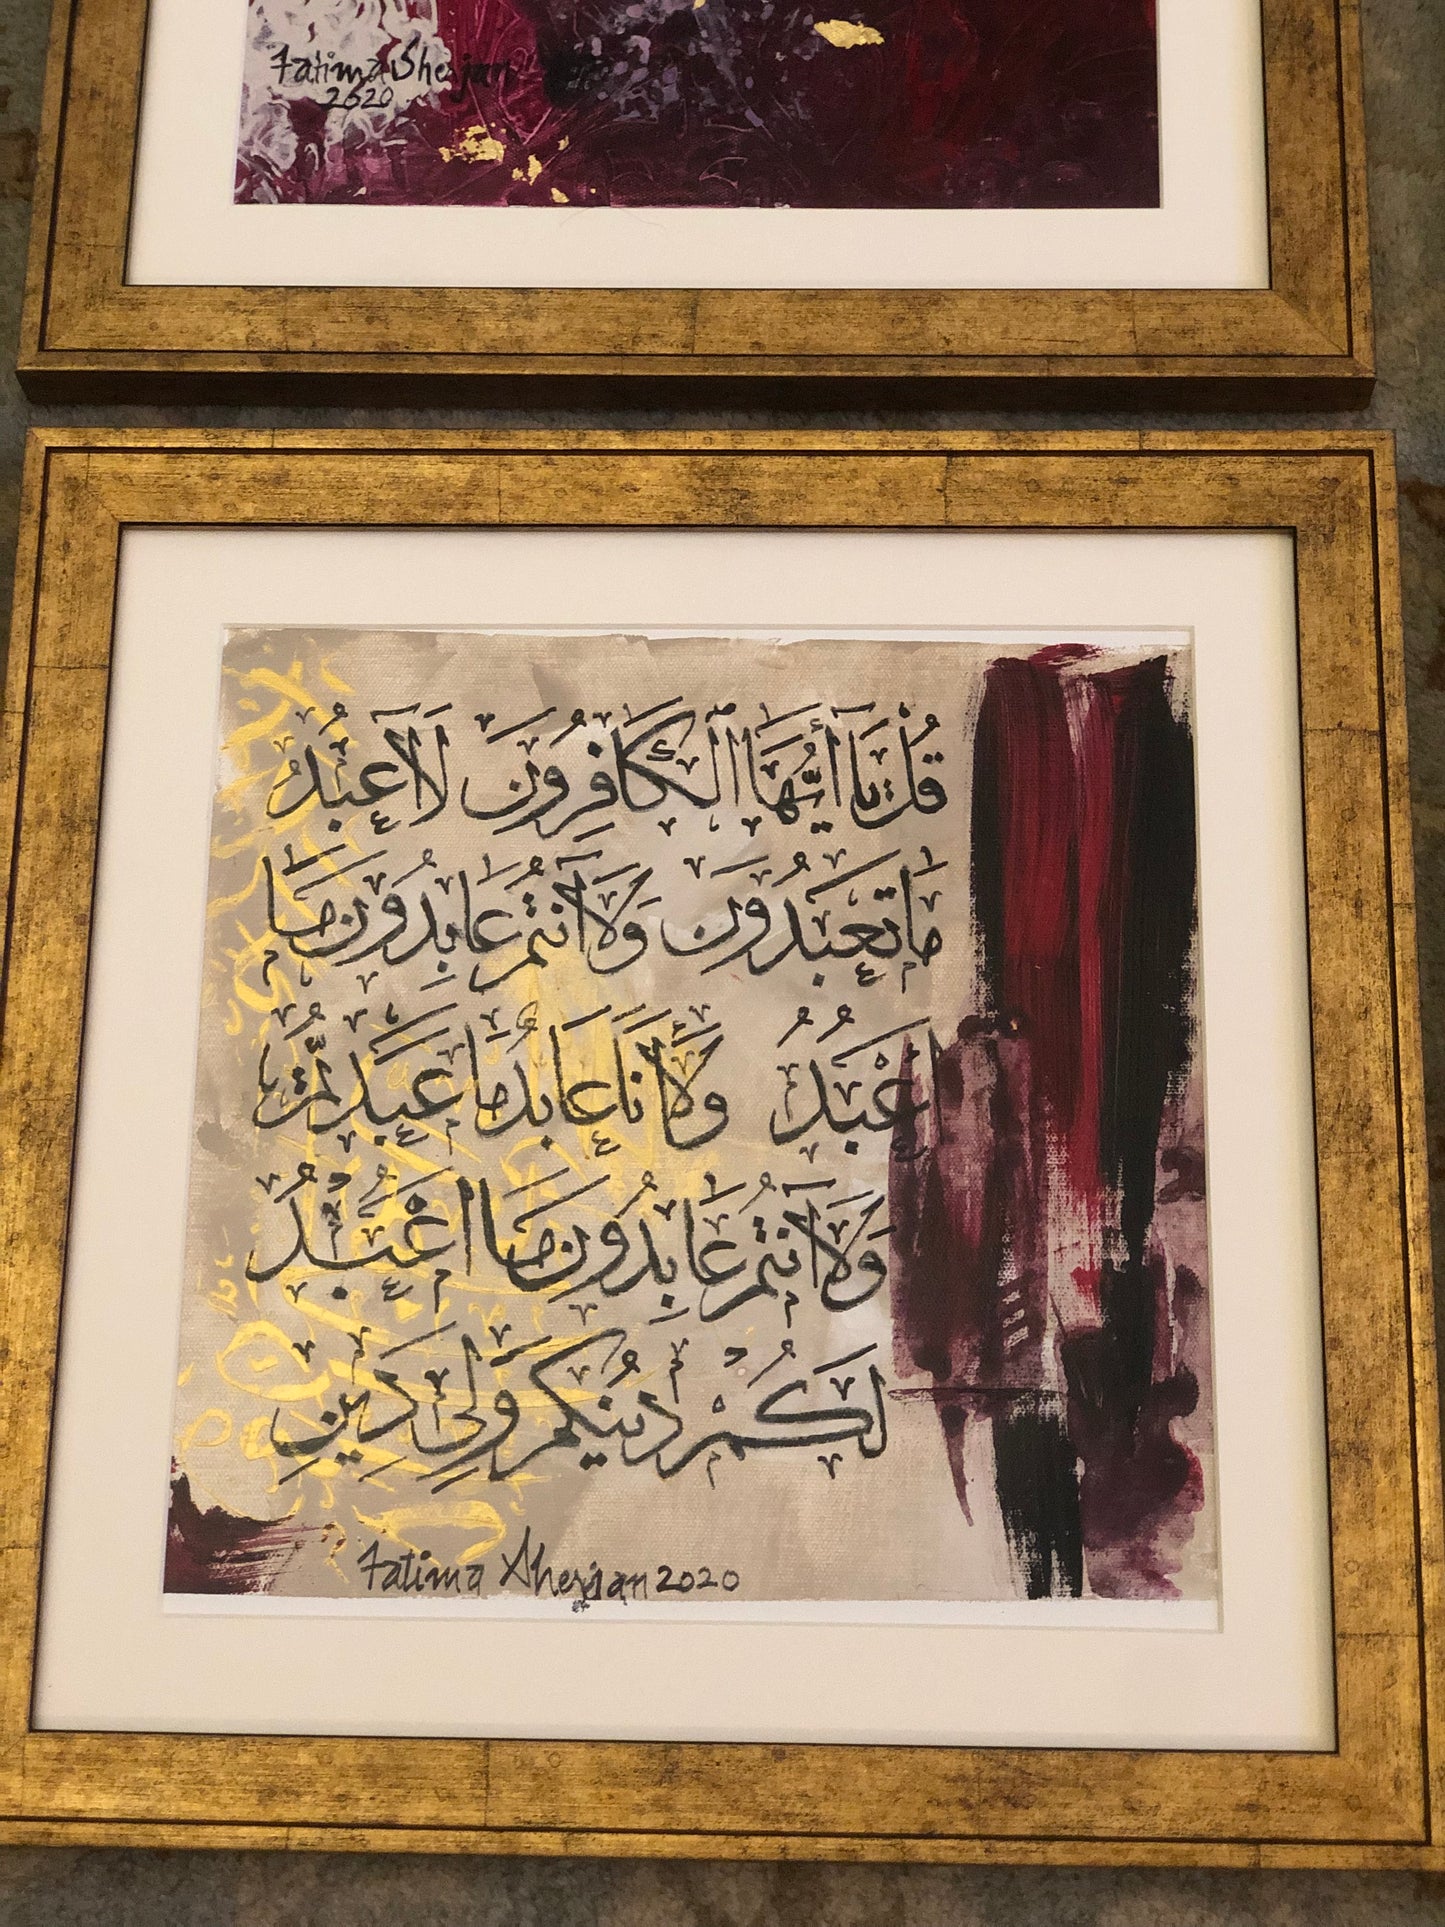 Fatima Sherjan
2020
قُلْ يَا أَيُّهَا ٱلْكَافِرُونَ لَا أَعْبُدُ
مَا تَعْبُدُونَ وَلَا أَنتُمْ عَابِدُونَ مَا
اعْبُدُ وَلَا أَنَا عَابِدُ مَا عَبَدتُّمْ
وَلَا أَنتُمْ عَابِدُونَ مَا اعْبُدُ
لَكُمْ دِينُكُمْ وَلِيَ دِينِ
Fatima Sherjan 2020